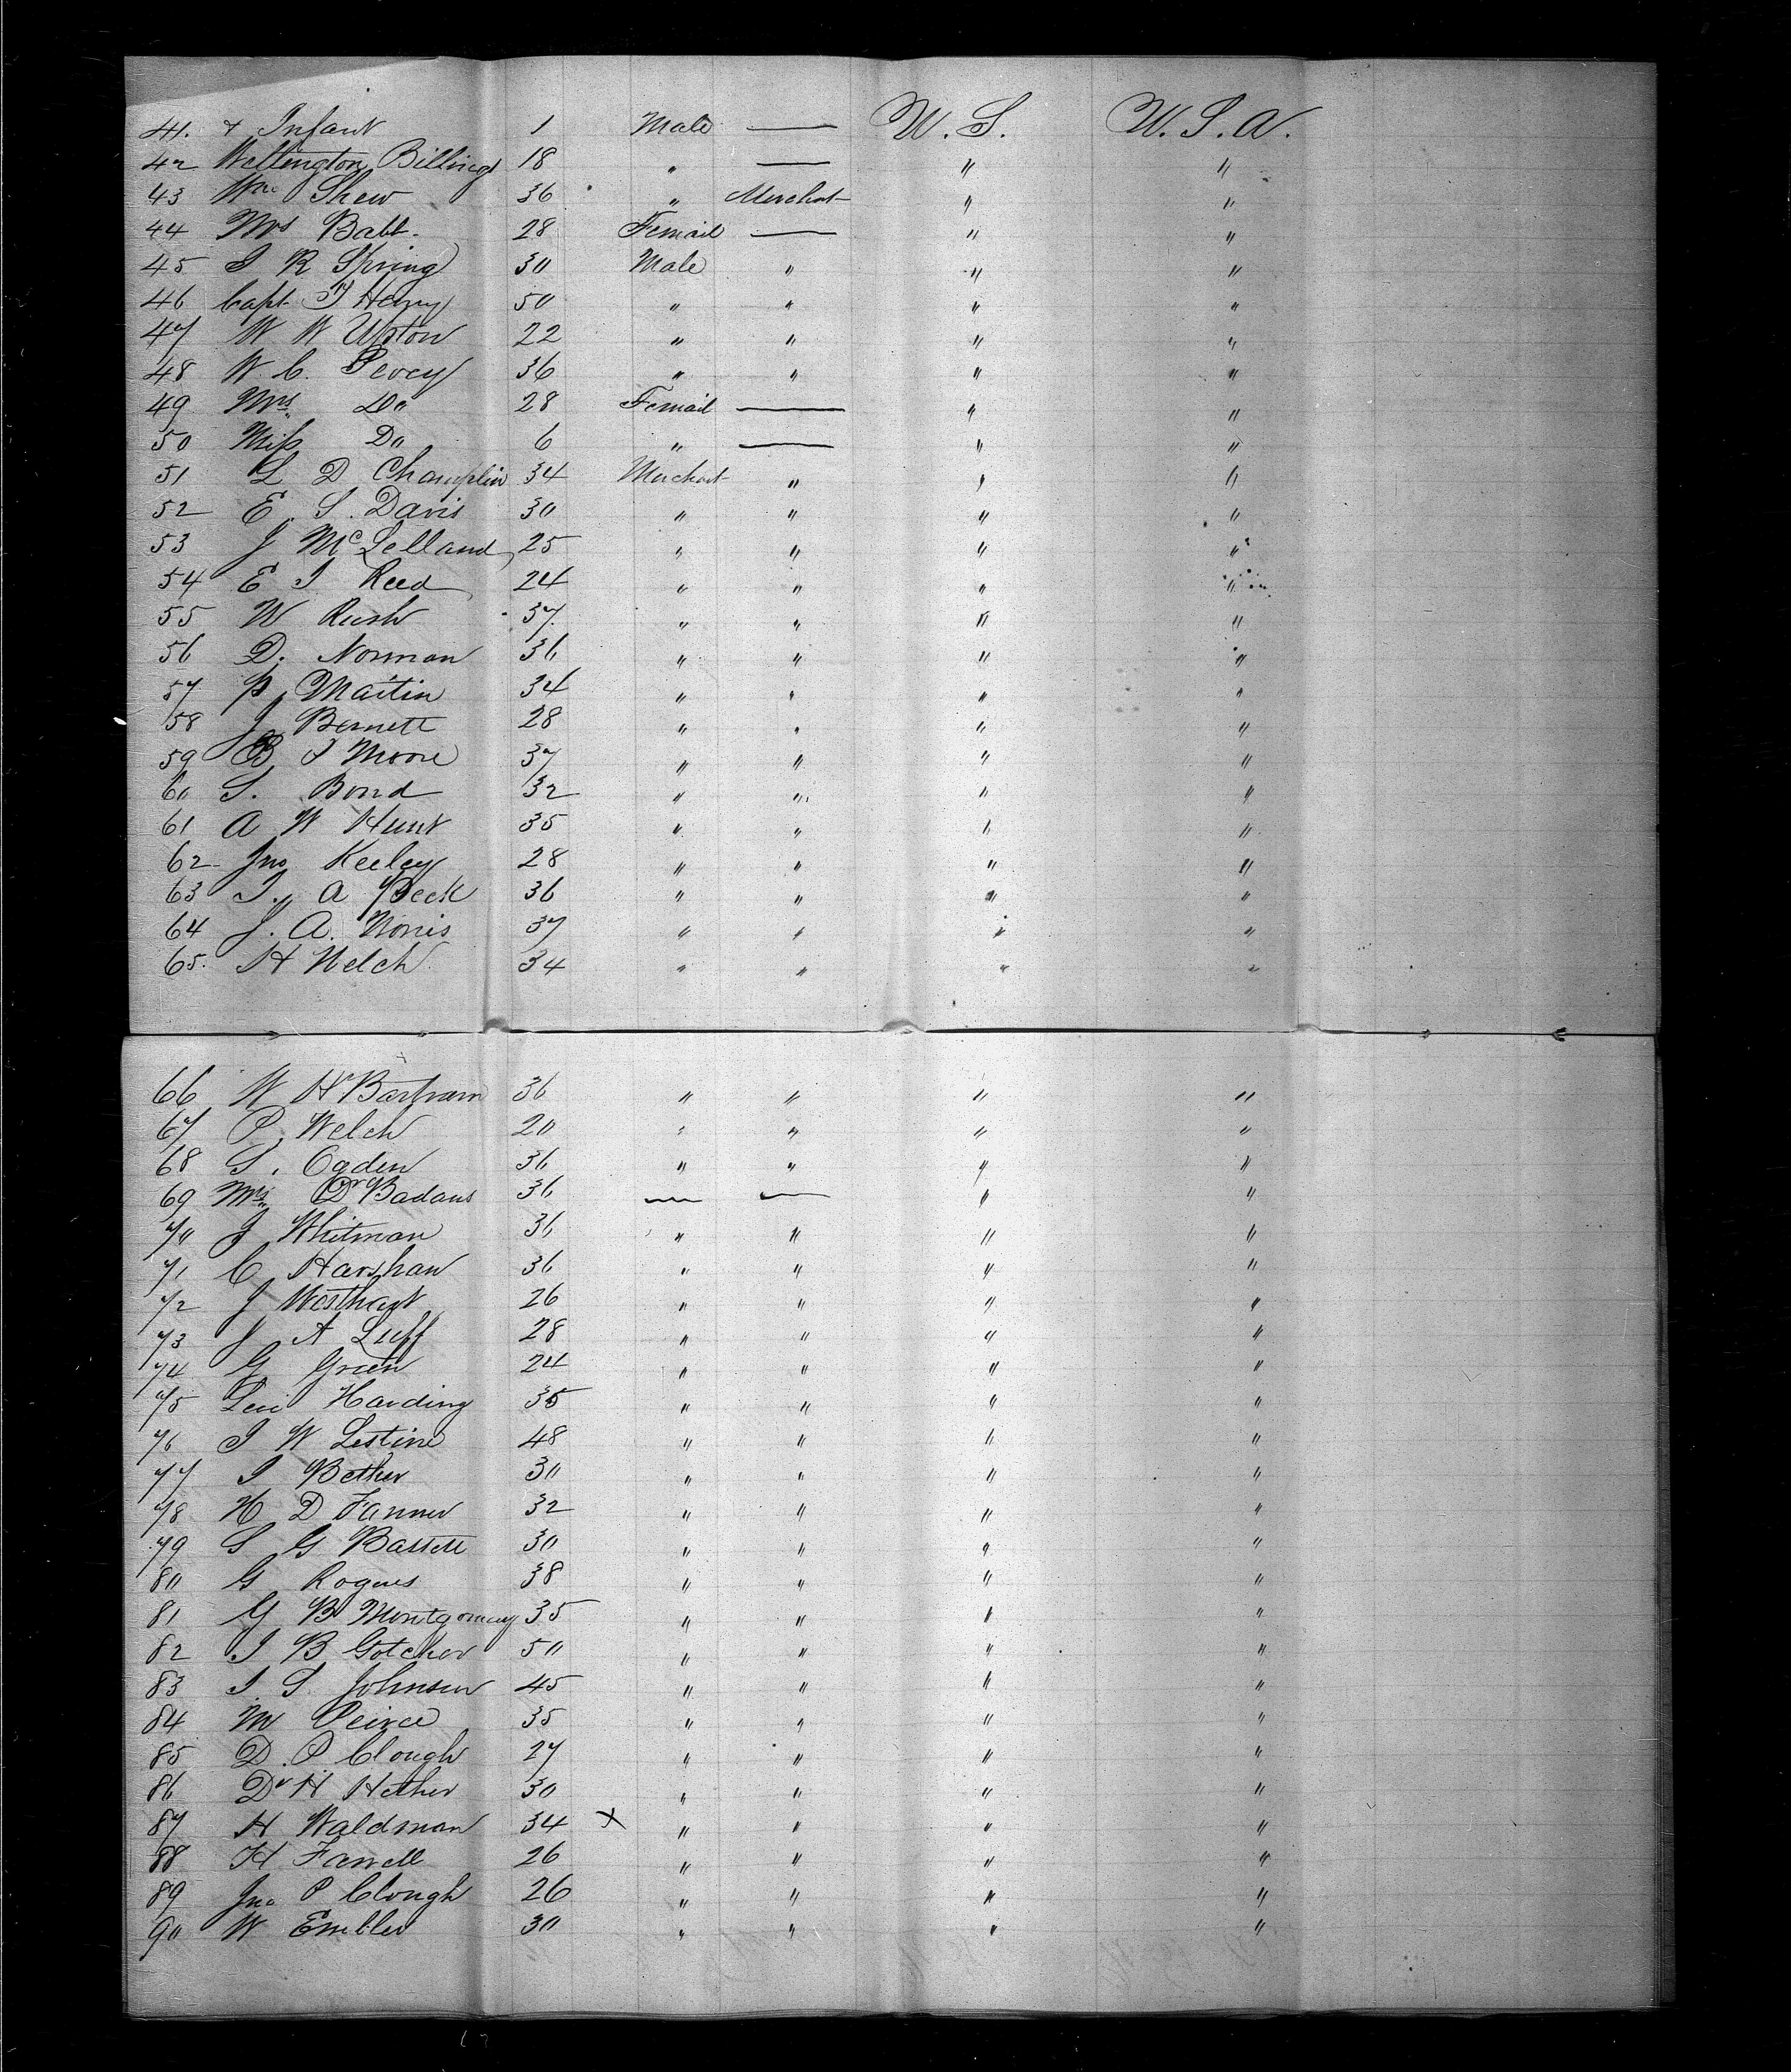 41. + Infant 1 Male — U.S. U.S.A.
42 Wellington Billings 18 " — " "
43 Wm Shew 36 " Merchant " "
44 Mrs Babb. 28 Femail — " "
45 I R Spring 30 Male " " "
46 Capt. T Henry 50 " " " "
47 W W Upton 22 " " " "
48 W C. Pevey 36 " " " "
49 Mrs Do 28 Femail — " "
50 Miss Do 6 " — " "
51 L D Champlin 34 Merchant " " "
52 E. S. Davis 30 " " " "
53 J McLelland 25 " " " "
54 E I Reed 24 " " " "
55 W Rush 37. " " " "
56 D. Norman 36 " " " "
57 P Martin 34 " " " "
58 J Bennett 28 " " " "
59 B I Moore 37 " " " "
60 S. Bond 32 " " " "
61 A W Hunt 35 " " " "
62 Jno Keeley 28 " " " "
63 I. A Peck 36 " " " "
64 J. A. Norris 37 " " " "
65. H Welch 34 " " " "
66 W H Bartram 36 " " " "
67 P Welch 20 " " " "
68 S. Ogden 36 " " " "
69 Mrs Dr Badans 36 — — " "
70 J Whitman 36 " " " "
71 C Harshaw 36 " " " "
72 J Westhart 26 " " " "
73 J A Luff 28 " " " "
74 G Green 24 " " " "
75 Levi Harding 35 " " " "
76 I W Lestine 48 " " " "
77 I Bether 30 " " " "
78 H D Fanner 32 " " " "
79 S G Bassett 30 " " " "
80 G Rogues 38 " " " "
81 G B Montgomery 35 " " " "
82 I B Gotcher 50 " " " "
83 I. S Johnson 45 " " " "
84 M Peirce 35 " " " "
85 D. P Clough 27 " " " "
86 Dr H Hether 30 " " " "
87 H Waldman 34 x " " " "
88 H Farrell 26 " " " "
89 Jno P Clough 26 " " " "
90 W Embler 30 " " " "